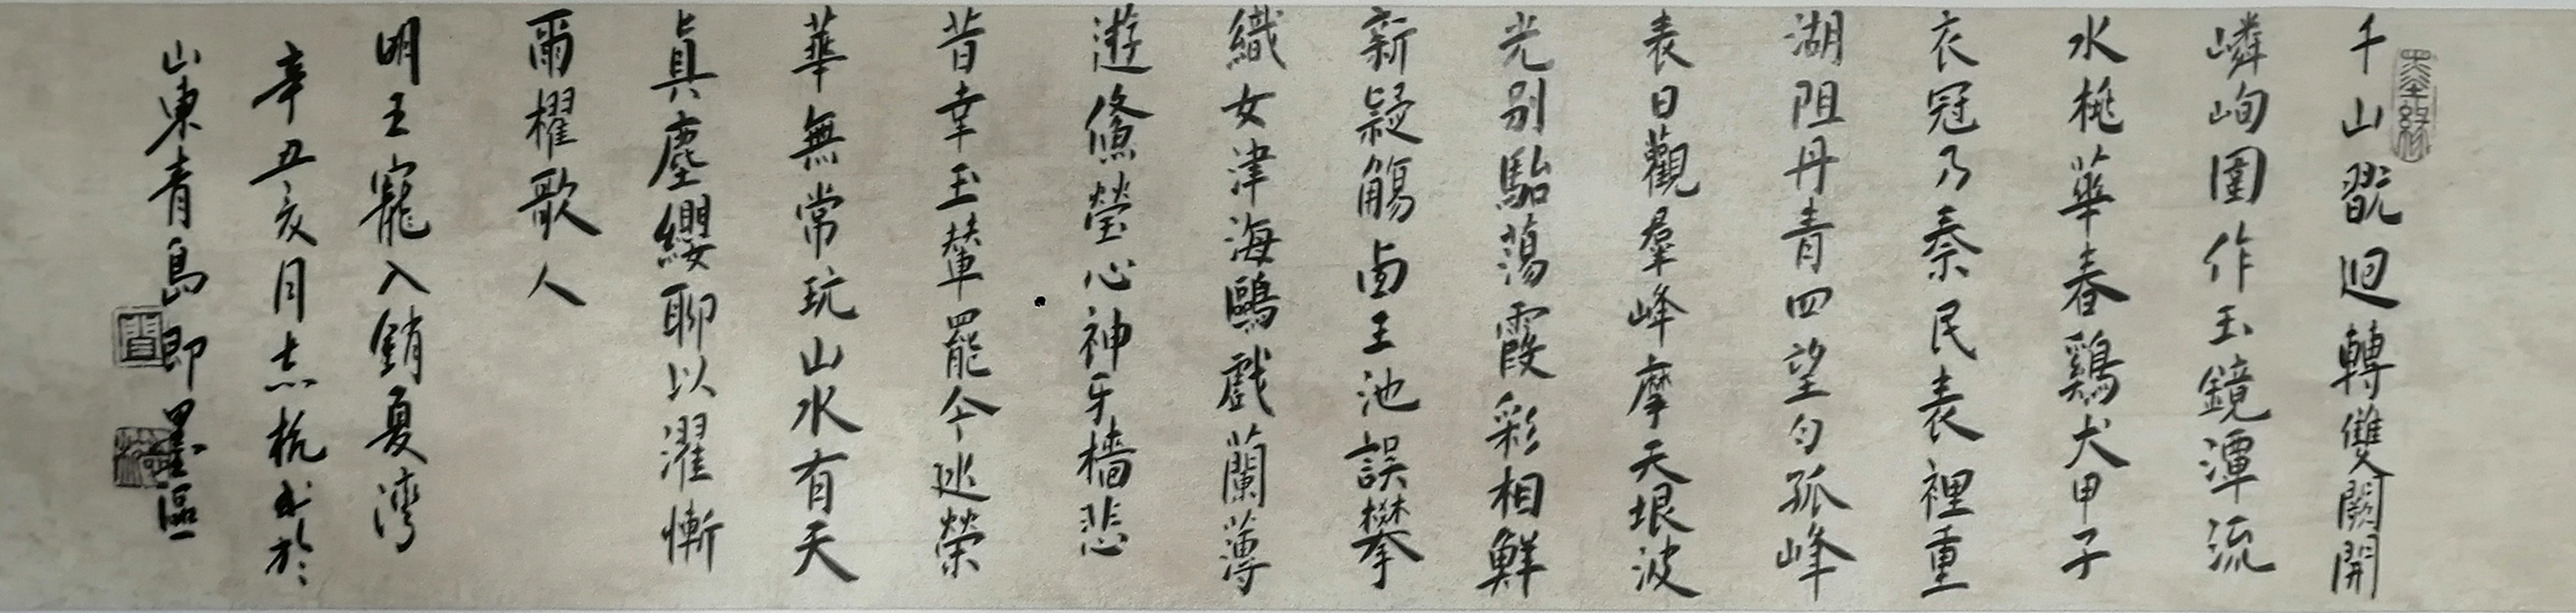 千山翫迴轉雙闕開
嶙峋圍作玉鏡潭流
水桃華春鷄犬甲子
衣冠乃秦民表裡重
湖阻丹青四望勻孤峰
表日觀羣峰摩天垠波
光別駘蕩霞彩相鮮
新疑觴卤王池誤攀
織女津海鷗戲蘭薄
遊鯈瑩心神牙檣悲
昔幸玉輦罷今巡榮
華無常玩山水有天
真塵纓聊以濯慚
爾櫂歌人
明王寵入銷夏灣
辛丑亥月志杭书於
山東青島即墨區